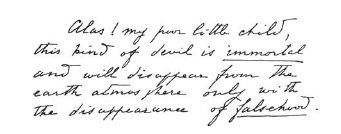 Alas! my poor little child,
this kind of devil is immortal
and will disappear from the
earth atmosphere only with
the disappearance of falsehood.